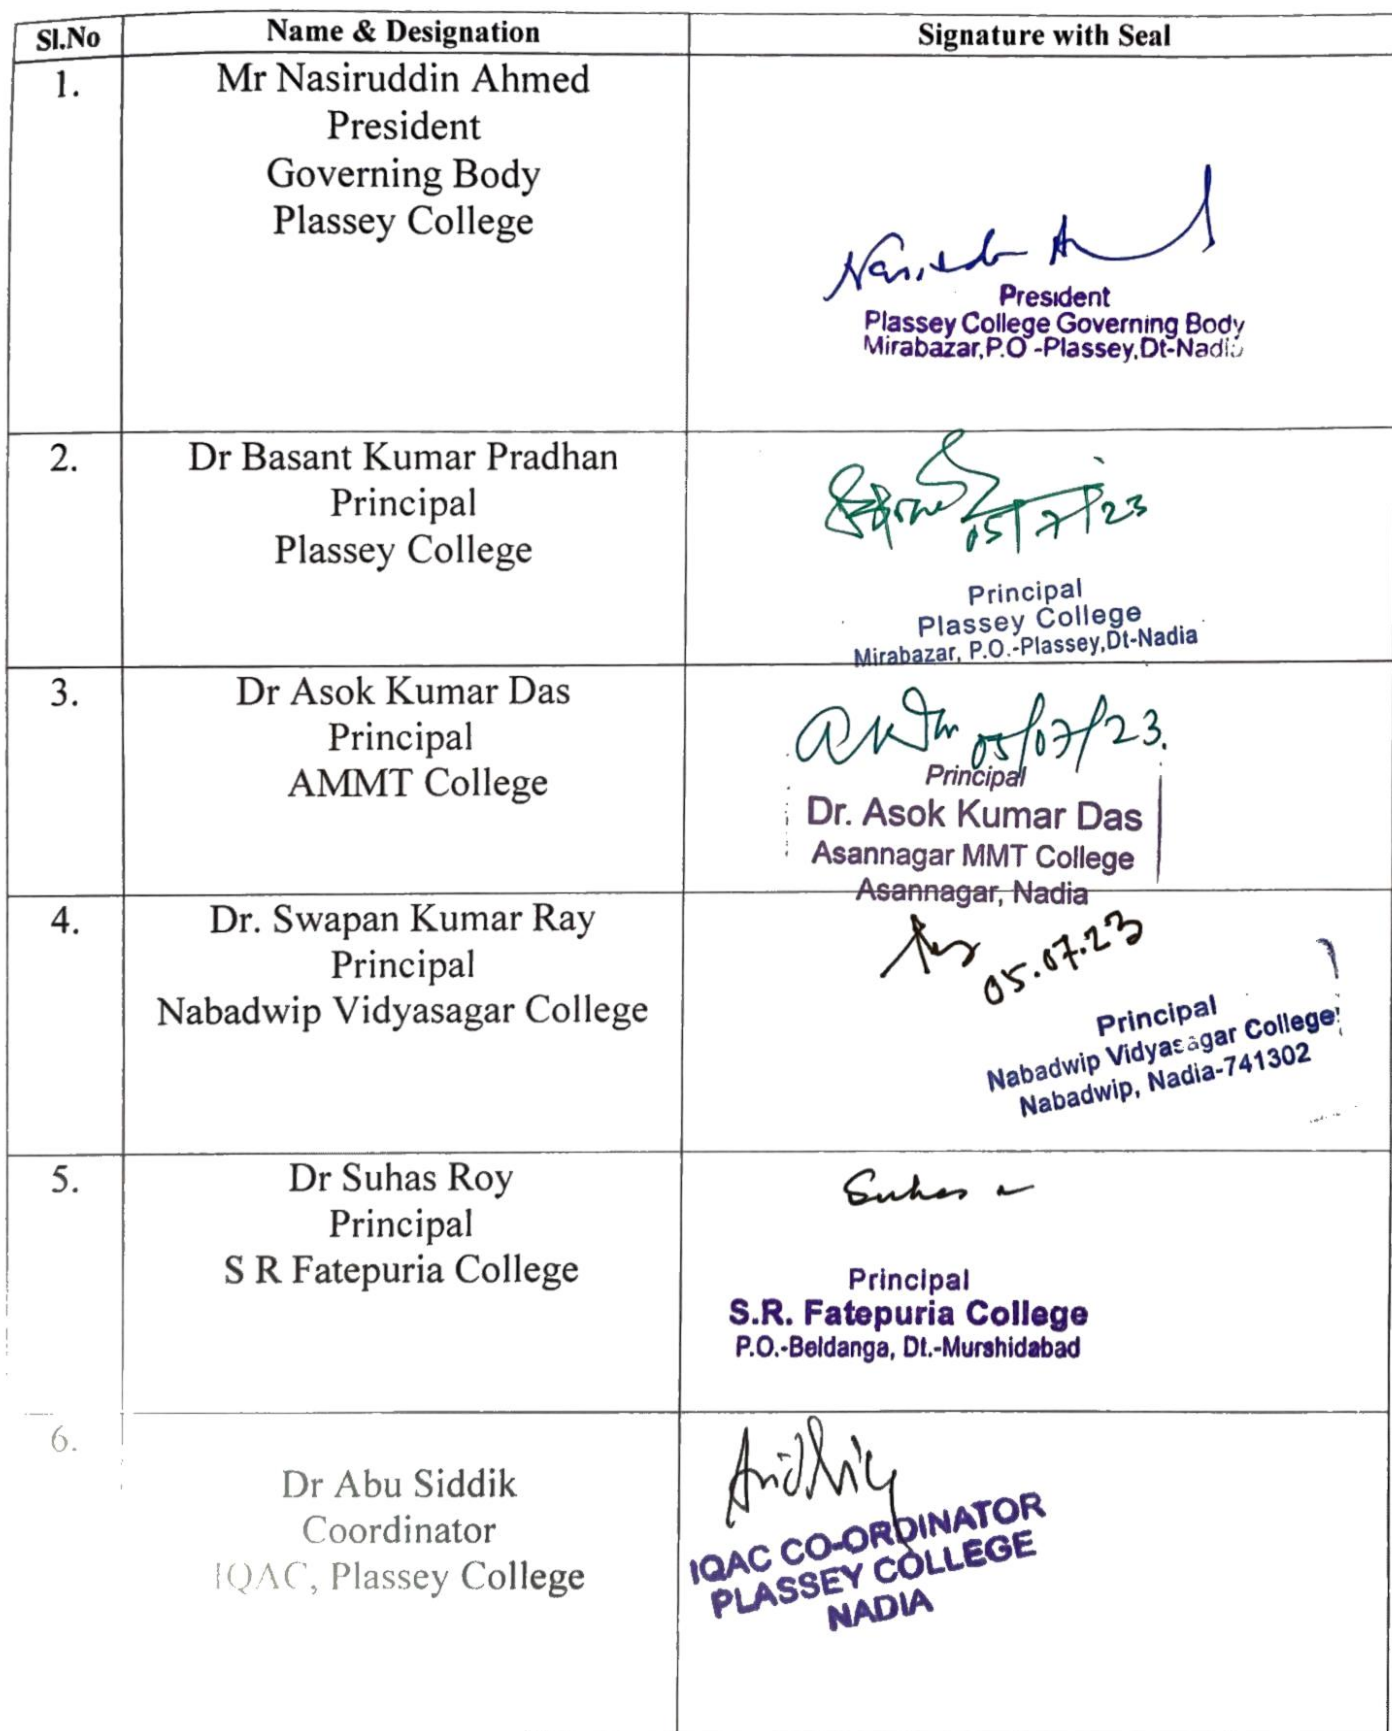 Sl.No Name & Designation Signature with Seal
1. Mr Nasiruddin Ahmed
President
Governing Body
Plassey College
President
Plassey College Governing Body
Mirabazar,P.O -Plassey,Dt-Nadia
2. Dr Basant Kumar Pradhan
Principal
Plassey College
05/7/23
Principal
Plassey College
Mirabazar, P.O.-Plassey,Dt-Nadia
3. Dr Asok Kumar Das
Principal
AMMT College
05/07/23.
Principal
Dr. Asok Kumar Das
Asannagar MMT College
Asannagar, Nadia
4. Dr. Swapan Kumar Ray
Principal
Nabadwip Vidyasagar College
05.07.23
Principal
Nabadwip Vidyasagar College
Nabadwip, Nadia-741302
5. Dr Suhas Roy
Principal
S R Fatepuria College
Suhas
Principal
S.R. Fatepuria College
P.O.-Beldanga, Dt.-Murshidabad
6.
Dr Abu Siddik
Coordinator
IQAC, Plassey College
IQAC CO-ORDINATOR
PLASSEY COLLEGE
NADIA